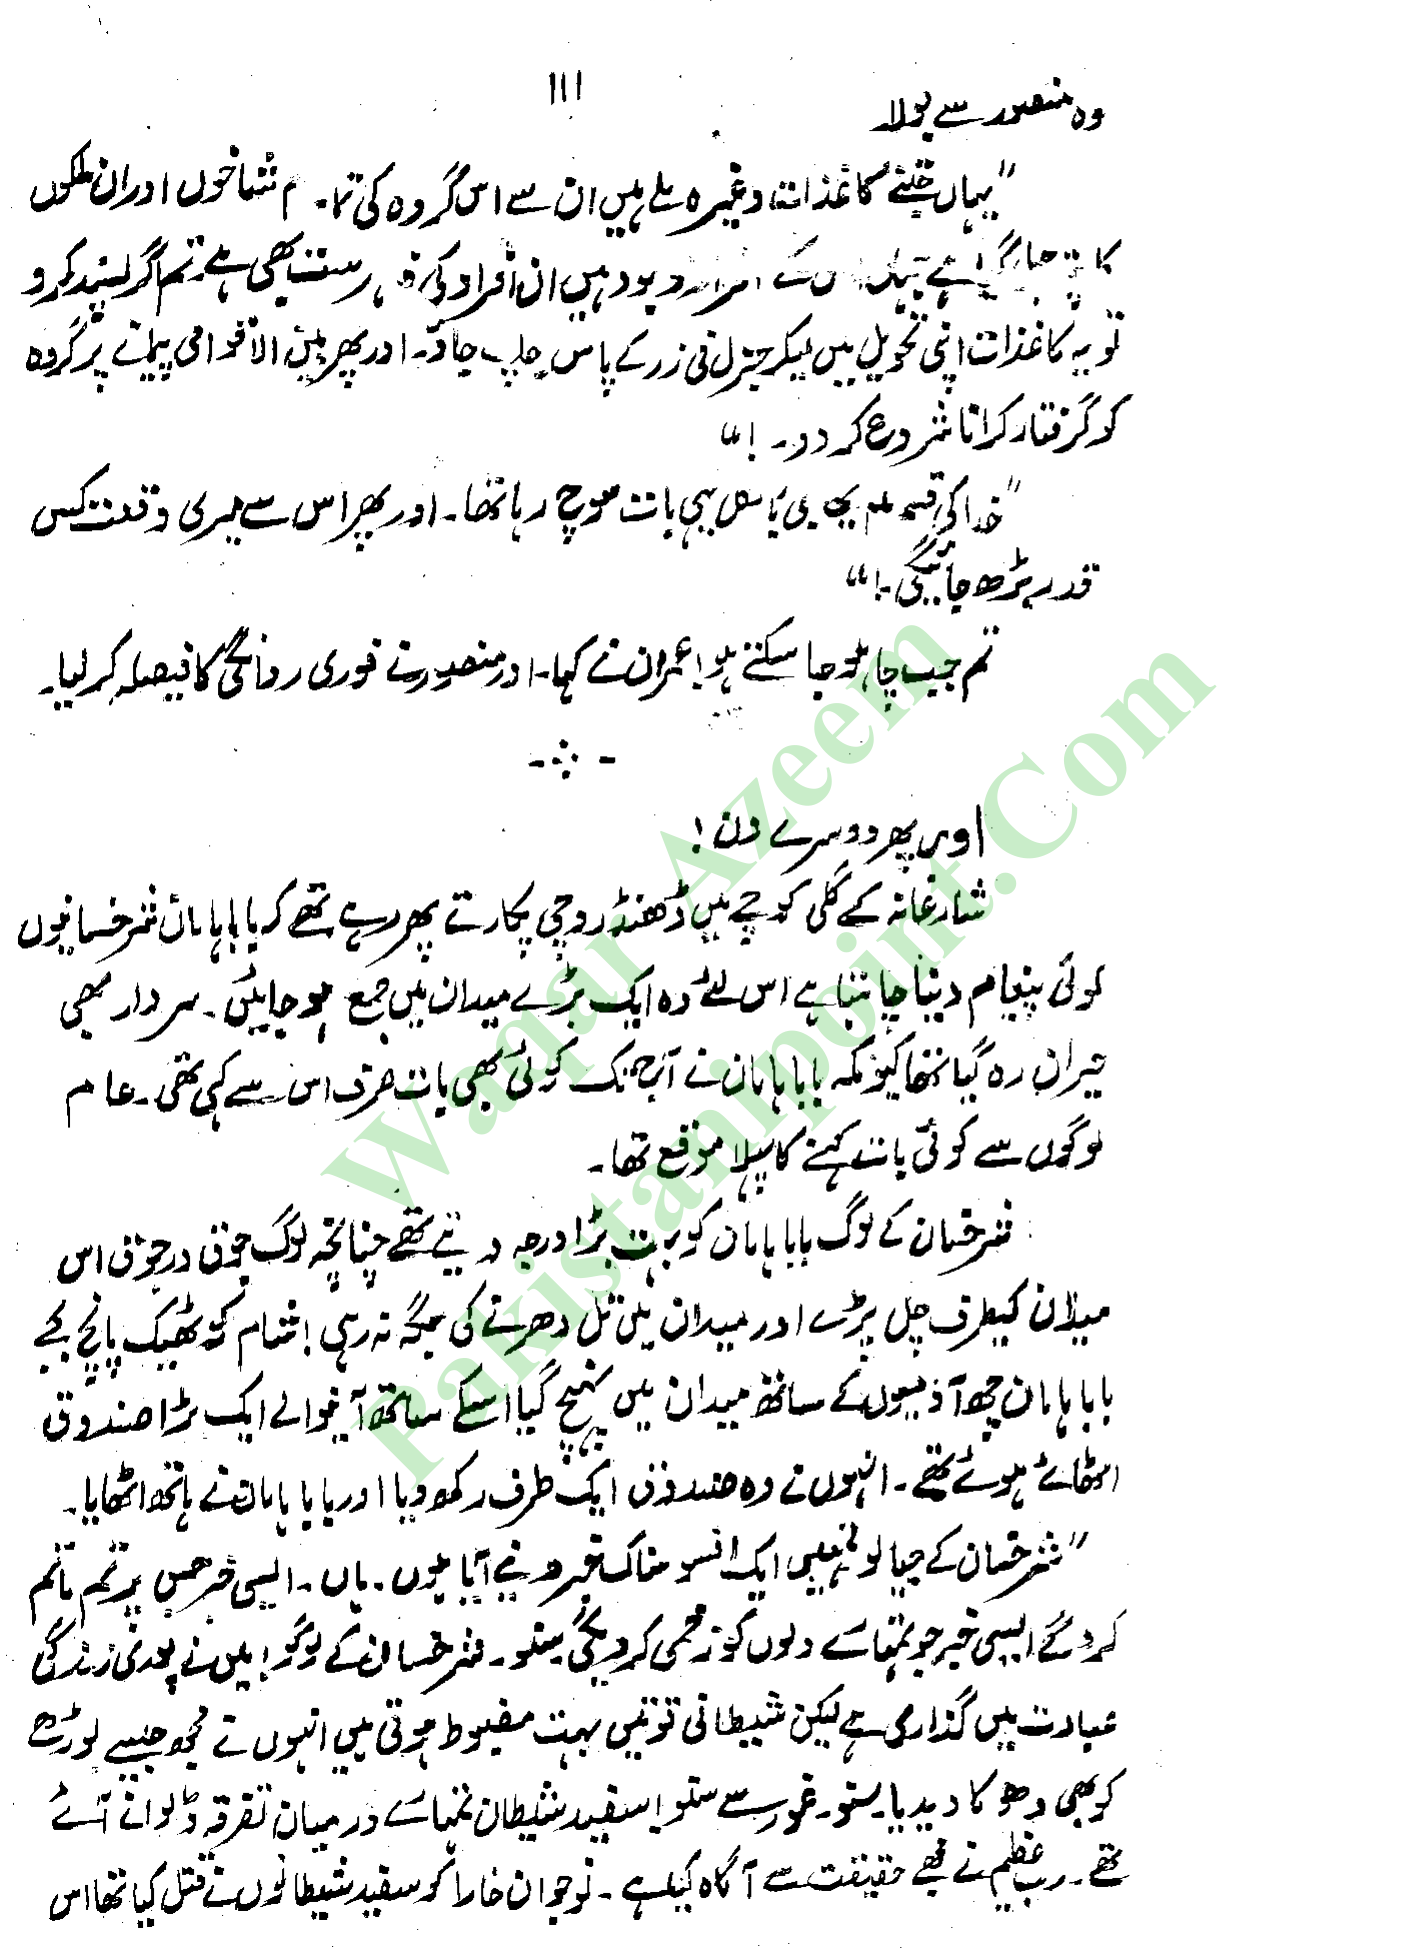 ۱۱۱
وہ منصور سے بولا
"یہاں جتنے کاغذات وغیرہ ملے ہیں ان سے اس گروہ کی تمام شاخوں اور ان ملکوں
کا پتہ چل گیا ہے جہاں اس کے افراد موجود ہیں ان افراد کی فہرست بھی ہے تم اگر پسند کرو
تو یہ کاغذات اپنی تحویل میں لیکر جنرل فی زر کے پاس چلے جاؤ۔ اور پھر بین الاقوامی پیمانے پر گروہ
کو گرفتار کرانا شروع کر دو۔!"
"خدا کی قسم میں بھی بالکل یہی بات سوچ رہا تھا۔ اور پھر اس سے میری وقعت کس
قدر بڑھ جائیگی۔!"
تم جب چاہو جا سکتے ہو! عمران نے کہا۔ اور منصور نے فوری روانگی کا فیصلہ کر لیا۔
اور پھر دوسرے دن!
شارغانہ کے گلی کوچے میں ڈھنڈورچی پکارتے پھر رہے تھے کہ بابا ہامان شرخسانیوں
کوئی پیغام دینا چاہتا ہے اس لئے وہ ایک بڑے میدان میں جمع ہو جائیں۔ سردار بھی
حیران رہ گیا تھا کیونکہ بابا ہامان نے آجتک کوئی بھی بات صرف اس سے کہی تھی۔ عام
لوگوں سے کوئی بات کہنے کا پہلا موقع تھا۔
شرخسان کے لوگ بابا ہامان کو بہت بڑا درجہ دیتے تھے چنانچہ لوگ جوق در جوق اس
میدان کیطرف چل پڑے اور میدان میں تل دھرنے کی جگہ نہ رہی! شام کو ٹھیک پانچ بجے
بابا ہامان چھ آدمیوں کے ساتھ میدان میں پہنچ گیا اسکے ساتھ آنیوالے ایک بڑا صندوق
اٹھائے ہوئے تھے۔ انہوں نے وہ صندوق ایک طرف رکھ دیا اور بابا ہامان نے ہاتھ اٹھایا۔
"شرخسان کے جیالو تمہیں ایک افسوسناک خبر دینے آیا ہوں۔ ہاں۔ ایسی خبر جس پر تم ماتم
کرو گے ایسی خبر جو تمہارے دلوں کو زخمی کر دیگی سنو۔ شرخسان کے لوگو! میں نے پوری زندگی
عبادت میں گذاری ہے لیکن شیطانی قوتیں بہت مضبوط ہوتی ہیں انہوں نے مجھ جیسے بوڑھے
کو بھی دھوکا دیدیا۔ سنو۔ غور سے سنو! سفید شیطان تمہارے درمیان تفرقہ ڈلوانے آئے
تھے۔ رب عظیم نے مجھے حقیقت سے آگاہ کیا ہے۔ نوجوان خارا کو سفید شیطانوں نے قتل کیا تھا اس
Waqar Azeem
Pakistanipoint.Com